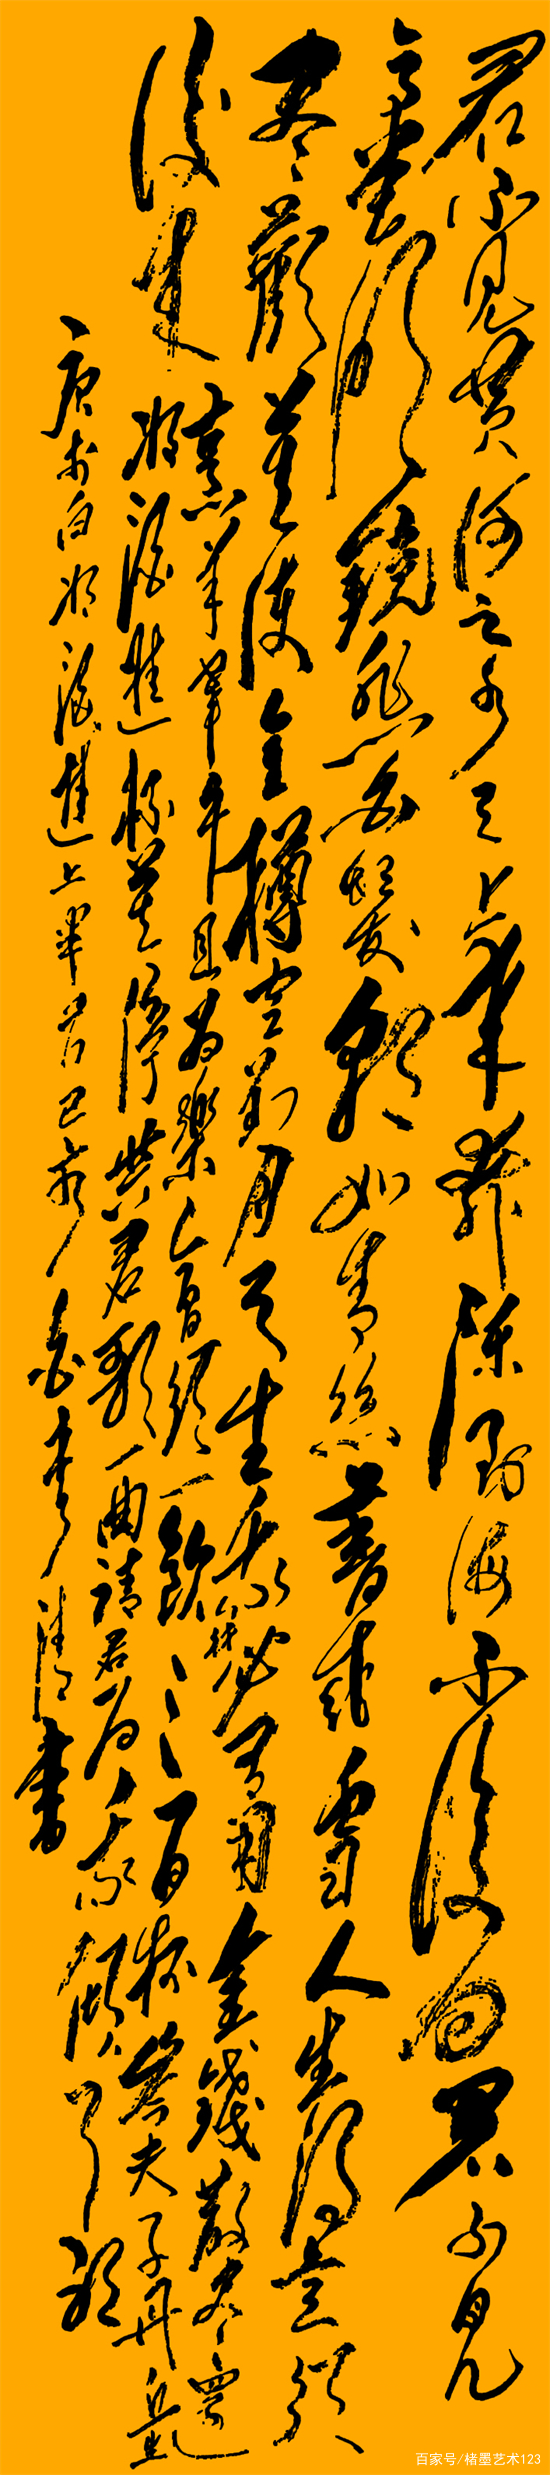 君不見黃河之水天上來奔流到海不復回君不見
高堂明鏡悲白髮朝如青絲暮成雪人生得意須
尽歡莫使金樽空對月天生我材必有用金錢散尽還
復来
烹羊宰牛且為樂會須一飲三百杯岑夫子丹丘生
将酒進杯莫停與君歌一曲請君為我傾耳聽
李白将酒進上半首己亥清書
百家号/楮墨艺术123